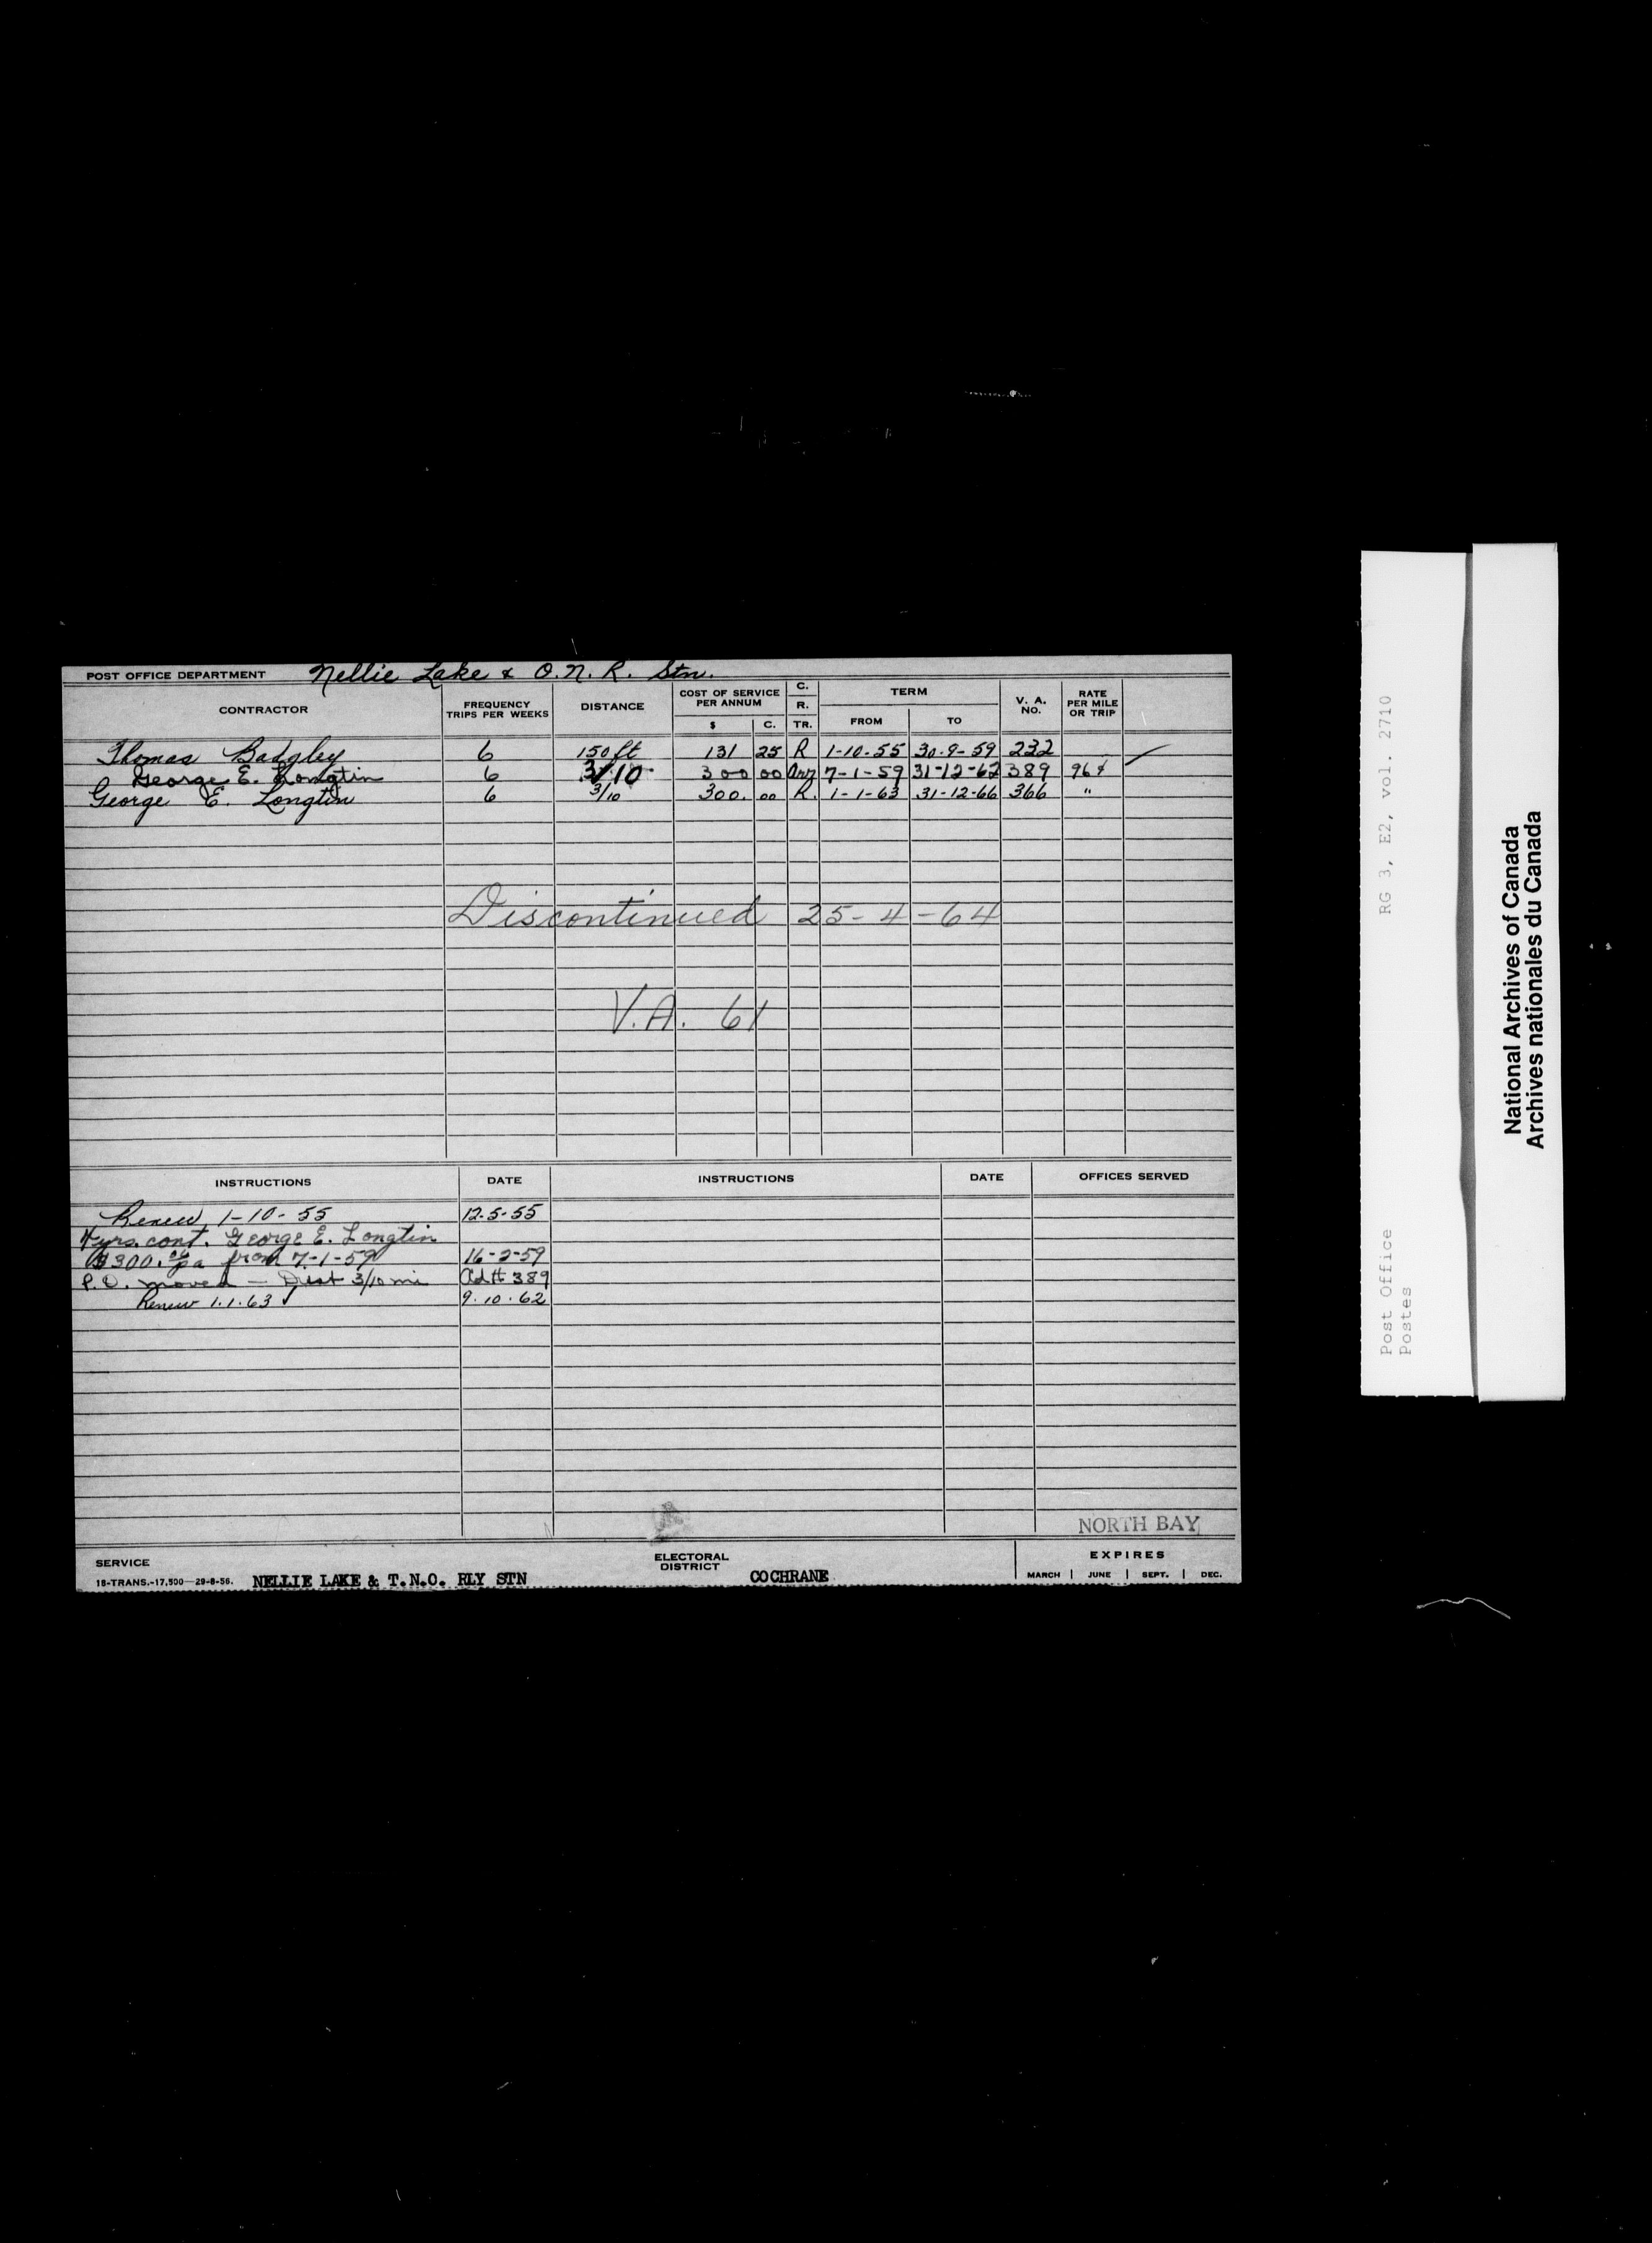 POST OFFICE DEPARTMENT Nellie Lake & O.N.R. Stn.
CONTRACTOR FREQUENCY TRIPS PER WEEKS DISTANCE COST OF SERVICE PER ANNUM $ C. C. R. TR. TERM FROM TO V. A. NO. RATE PER MILE OR TRIP
Thomas Badgley 6 150 ft 131 25 R 1-10-55 30-9-59 232
George E. Longtin 6 3/10 300 00 7-1-59 31-12-62 389 96¢
George E. Longtin 6 3/10 300. 00 R. 1-1-63 31-12-66 366 "
Discontinued 25-4-64
V.A. 61
INSTRUCTIONS DATE INSTRUCTIONS DATE OFFICES SERVED
Renew 1-10-55 12-5-55
4 yrs. cont. George E. Longtin
$300.00 pa from 7-1-59 16-2-59
P.O. moved — Dist 3/10 mi Ad# 389
Renew 1.1.63 9.10.62
NORTH BAY
SERVICE ELECTORAL DISTRICT EXPIRES
18-TRANS.-17,500—29-8-56. NELLIE LAKE & T.N.O. RLY STN COCHRANE MARCH | JUNE | SEPT. | DEC.
Post Office RG 3, E2, vol. 2710
Postes
National Archives of Canada
Archives nationales du Canada